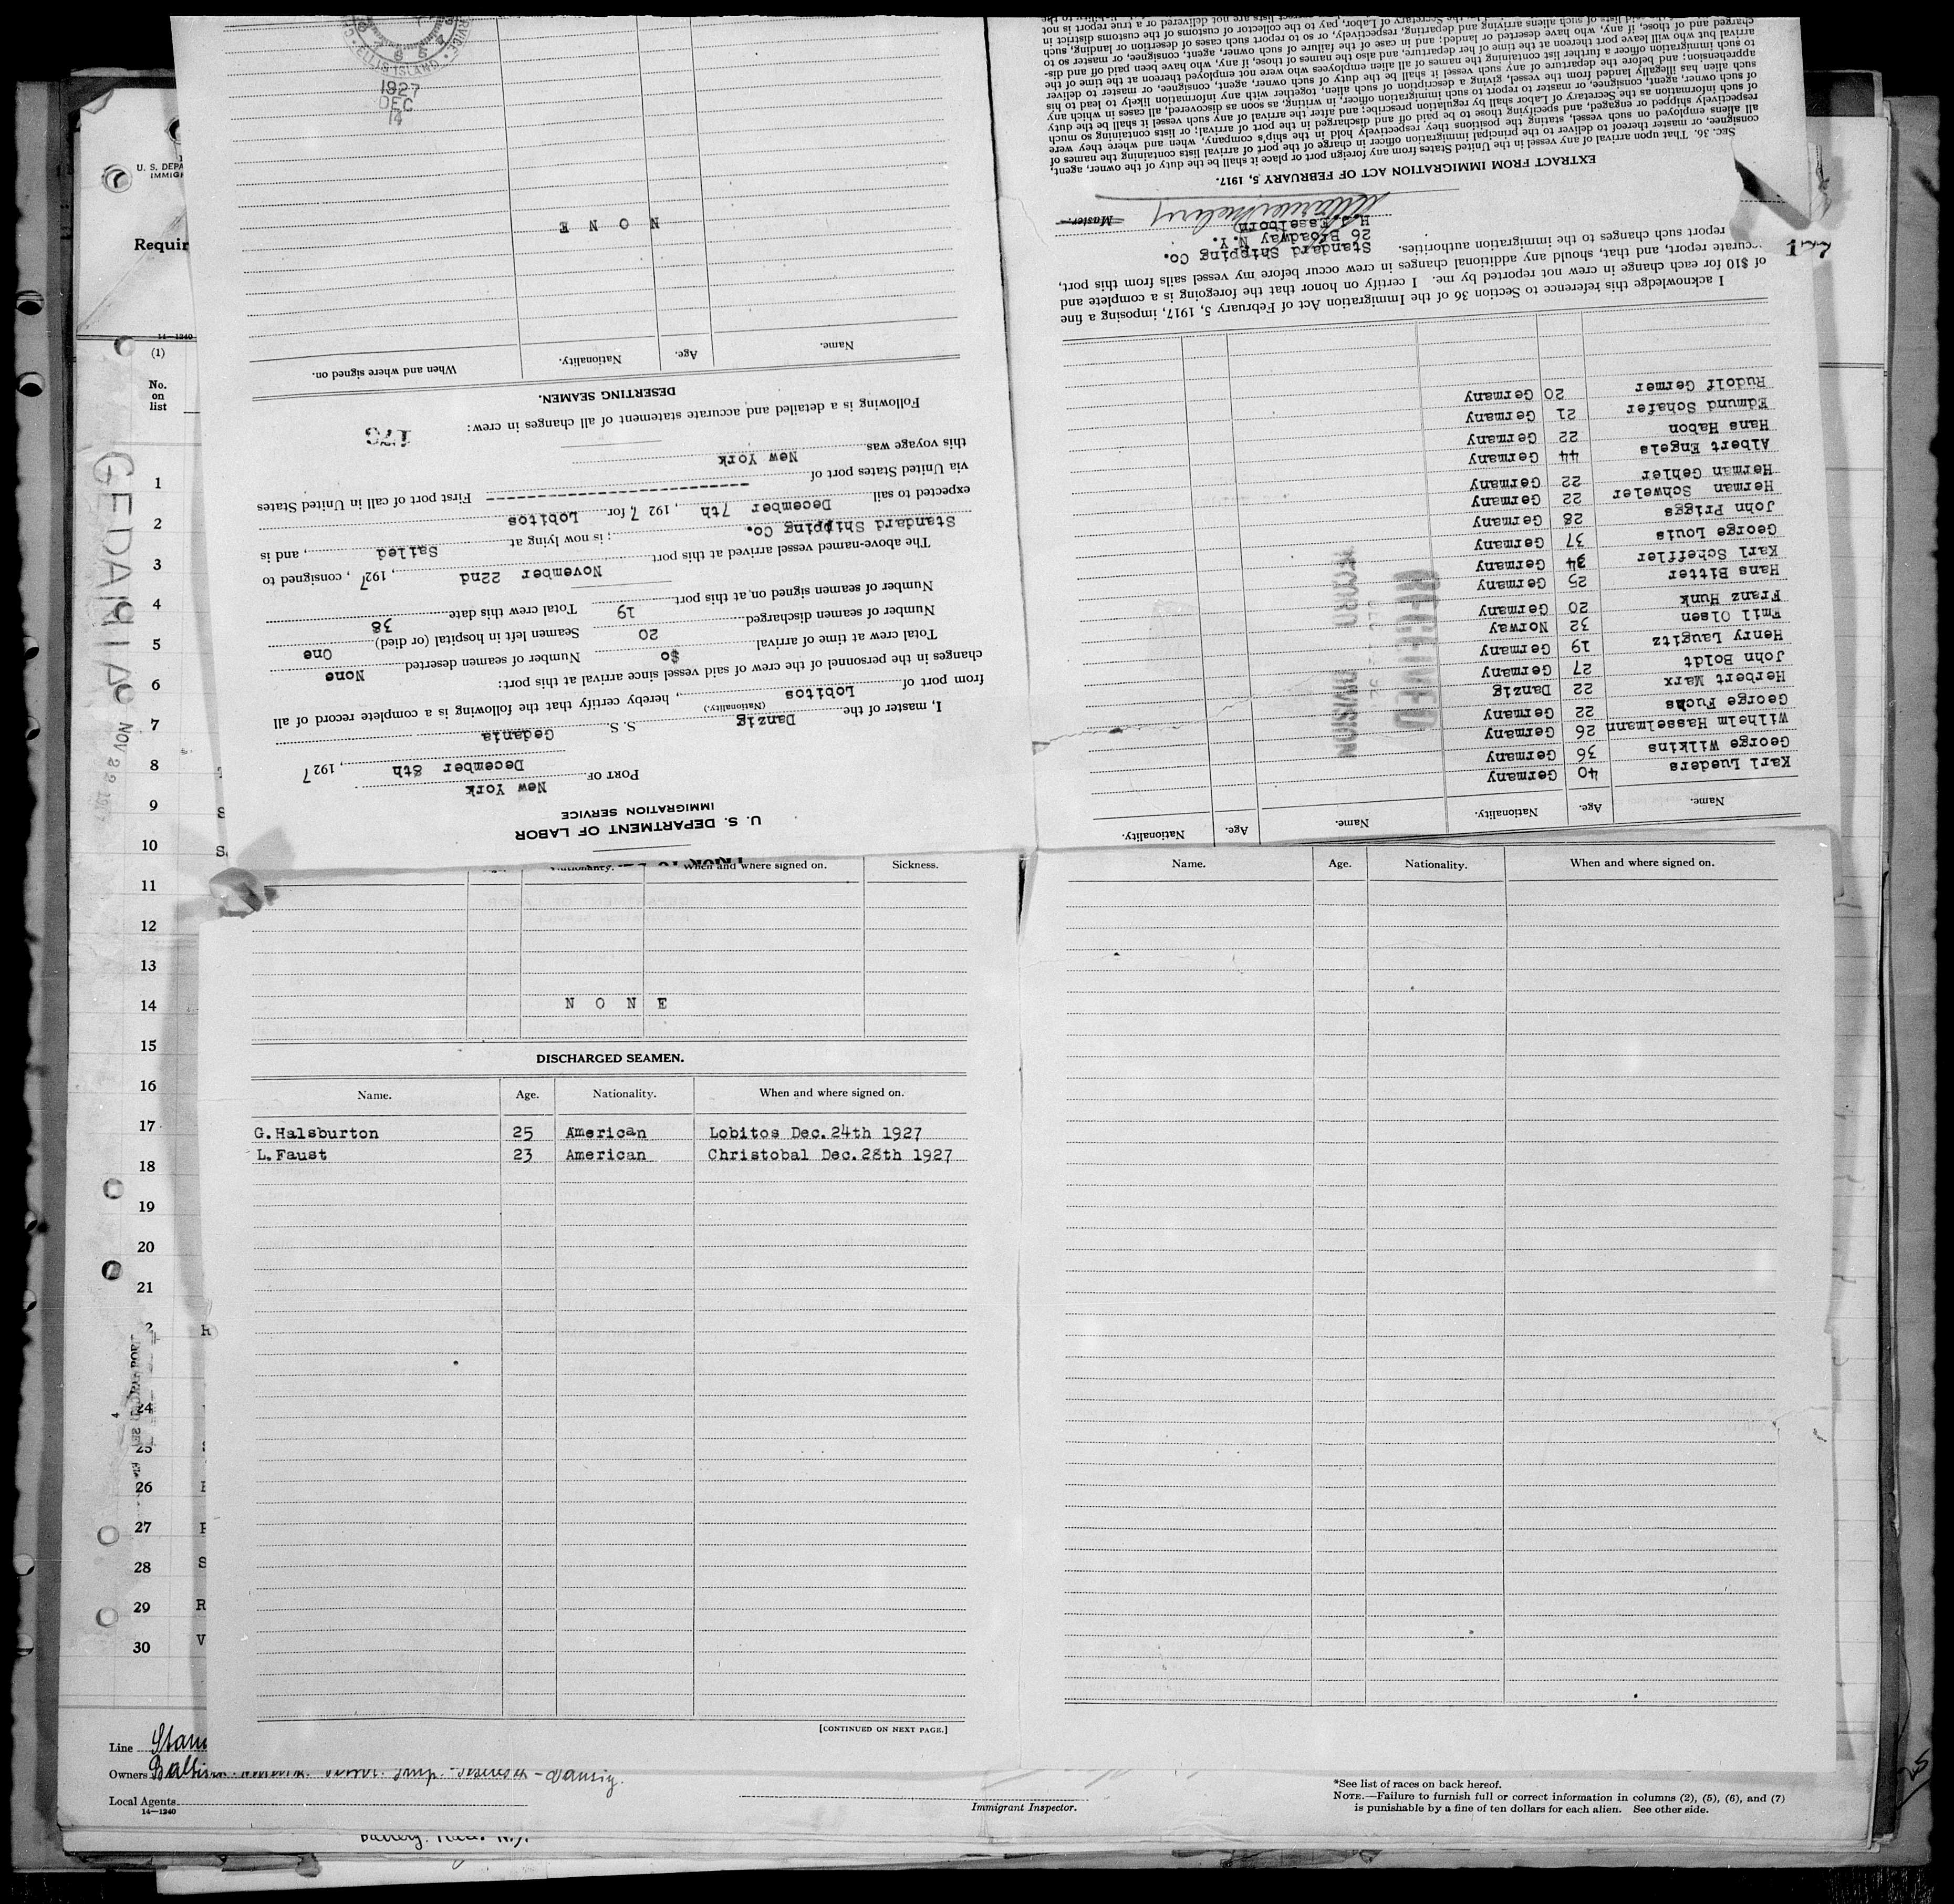 U. S. DEPARTMENT OF LABOR
IMMIGRATION SERVICE
New York
PORT OF
December 8th, 1927
I, master of the Danzig S. S. Gedania
(Nationality.)
from port of Lobitos, hereby certify that the following is a complete record of all
changes in the personnel of the crew of said vessel since arrival at this port:
Total crew at time of arrival Number of seamen deserted None
Number of seamen discharged 20 Seamen left in hospital (or died) One
Number of seamen signed on at this port 19 Total crew this date 38
The above-named vessel arrived at this port November 22nd, 1927, consigned to
Standard Shipping Co.; is now lying at Sailed, and is
expected to sail December 7th, 1927 for Lobitos
via United States port of First port of call in United States
this voyage was New York
Following is a detailed and accurate statement of all changes in crew:
DESERTING SEAMEN.
Name. Age. Nationality. When and where signed on.
N O N E
ELLIS ISLAND
1927
DEC
Name. Age. Nationality. Name. Age. Nationality.
Karl Lueders 40 Germany
George Wilkins 36 Germany
Wilhelm Hasselmann 26 Germany
George Fuchs 22 Germany
Herbert Marx 22 Danzig
John Boldt 27 Germany
Henry Laugitz 19 Germany
Emil Olsen 32 Norway
Franz Hunk 20 Germany
Hans Bitter 25 Germany
Karl Scheffler 34 Germany
George Louis 37 Germany
John Priggs 28 Germany
Herman Schweler 22 Germany
Herman Gehler 22 Germany
Albert Engels 44 Germany
Hans Habon 22 Germany
Edmund Schafer 21 Germany
Rudolf Germer 20 Germany
RECEIVED
DIVISION
I acknowledge this reference to Section 36 of the Immigration Act of February 5, 1917, imposing a fine
of $10 for each change in crew not reported by me. I certify on honor that the foregoing is a complete and
accurate report, and that, should any additional changes in crew occur before my vessel sails from this port,
report such changes to the immigration authorities.
Standard Shipping Co.
26 Broadway N.Y.
H. J. Esselborn
Master.
EXTRACT FROM IMMIGRATION ACT OF FEBRUARY 5, 1917.
SEC. 36. That upon arrival of any vessel in the United States from any foreign port or place it shall be the duty of the owner, agent,
consignee, or master thereof to deliver to the principal immigration officer in charge of the port of arrival lists containing the names of
all aliens employed on such vessel, stating the positions they respectively hold in the ship's company, when and where they were
respectively shipped or engaged, and specifying those to be paid off and discharged in the port of arrival; or lists containing so much
of such information as the Secretary of Labor shall by regulation prescribe; and after the arrival of any such vessel it shall be the duty
of such owner, agent, consignee, or master to report to such immigration officer, in writing, as soon as discovered, all cases in which any
such alien has illegally landed from the vessel, giving a description of such alien, together with any information likely to lead to his
apprehension; and before the departure of any such vessel it shall be the duty of such owner, agent, consignee, or master to deliver
to such immigration officer a further list containing the names of all alien employees who were not employed thereon at the time of the
arrival but who will leave port thereon at the time of her departure, and also the names of those, if any, who have been paid off and dis-
charged and of those, if any, who have deserted or landed; and in case of the failure of such owner, agent, consignee, or master so to
Nationality. When and where signed on. Sickness.
N O N E
DISCHARGED SEAMEN.
Name. Age. Nationality. When and where signed on.
G.Halsburton 25 American Lobitos Dec.24th 1927
L.Faust 23 American Christobal Dec.28th 1927
[CONTINUED ON NEXT PAGE.]
Name. Age. Nationality. When and where signed on.
U. S. DEPA
IMMIG
Requir
14—1240
(1)
No.
on
list
1
2
3
4
5
6
7
8
9
10
11
12
13
14
15
16
17
18
19
20
21
24
25
26
27
28
29
30
NOV 22
Line Stan
Owners
Local Agents
14—1240
Immigrant Inspector.
*See list of races on back hereof.
NOTE.—Failure to furnish full or correct information in columns (2), (5), (6), and (7)
is punishable by a fine of ten dollars for each alien. See other side.